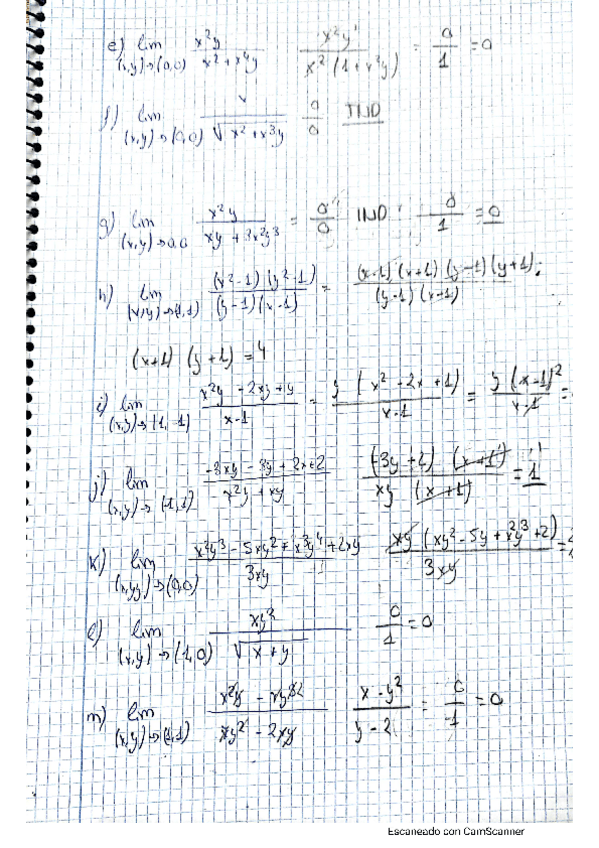 e) lim (x,y)→(0,0) x²y / x²+x⁴y   x²y / x²(1+x²y) = 0/1 = 0
f) lim (x,y)→(0,0) / √x²+x³y   0/0 IND
g) lim (x,y)→0,0 x²y / xy + 3x²y³ = 0/0 IND. 0/1 = 0
h) lim (x,y)→(1,1) (x²-1)(y²-1) / (y-1)(x-1) = (x-1)(x+1)(y-1)(y+1) / (y-1)(x-1) =
(x+1) (y+1) = 4
i) lim (x,y)→(1,-1) x²y - 2xy + y / x-1 = y (x² - 2x + 1) / x-1 = y (x-1)² / x-1 =
j) lim (x,y)→(-1,1) -3xy - 3y + 2x + 2 / x²y + xy   (-3y+2) (x+1) / xy (x+1) = 1
k) lim (x,y)→(0,0) x²y³ - 5xy² + x³y⁴ + 2xy / 3xy   xy (xy² - 5y + x²y³ + 2) / 3xy =
l) lim (x,y)→(1,0) xy² / √x+y   0/1 = 0
m) lim (x,y)→(1,1) / xy² - 2xy   x - y² / y - 2 = 0/-1 = 0
Escaneado con CamScanner